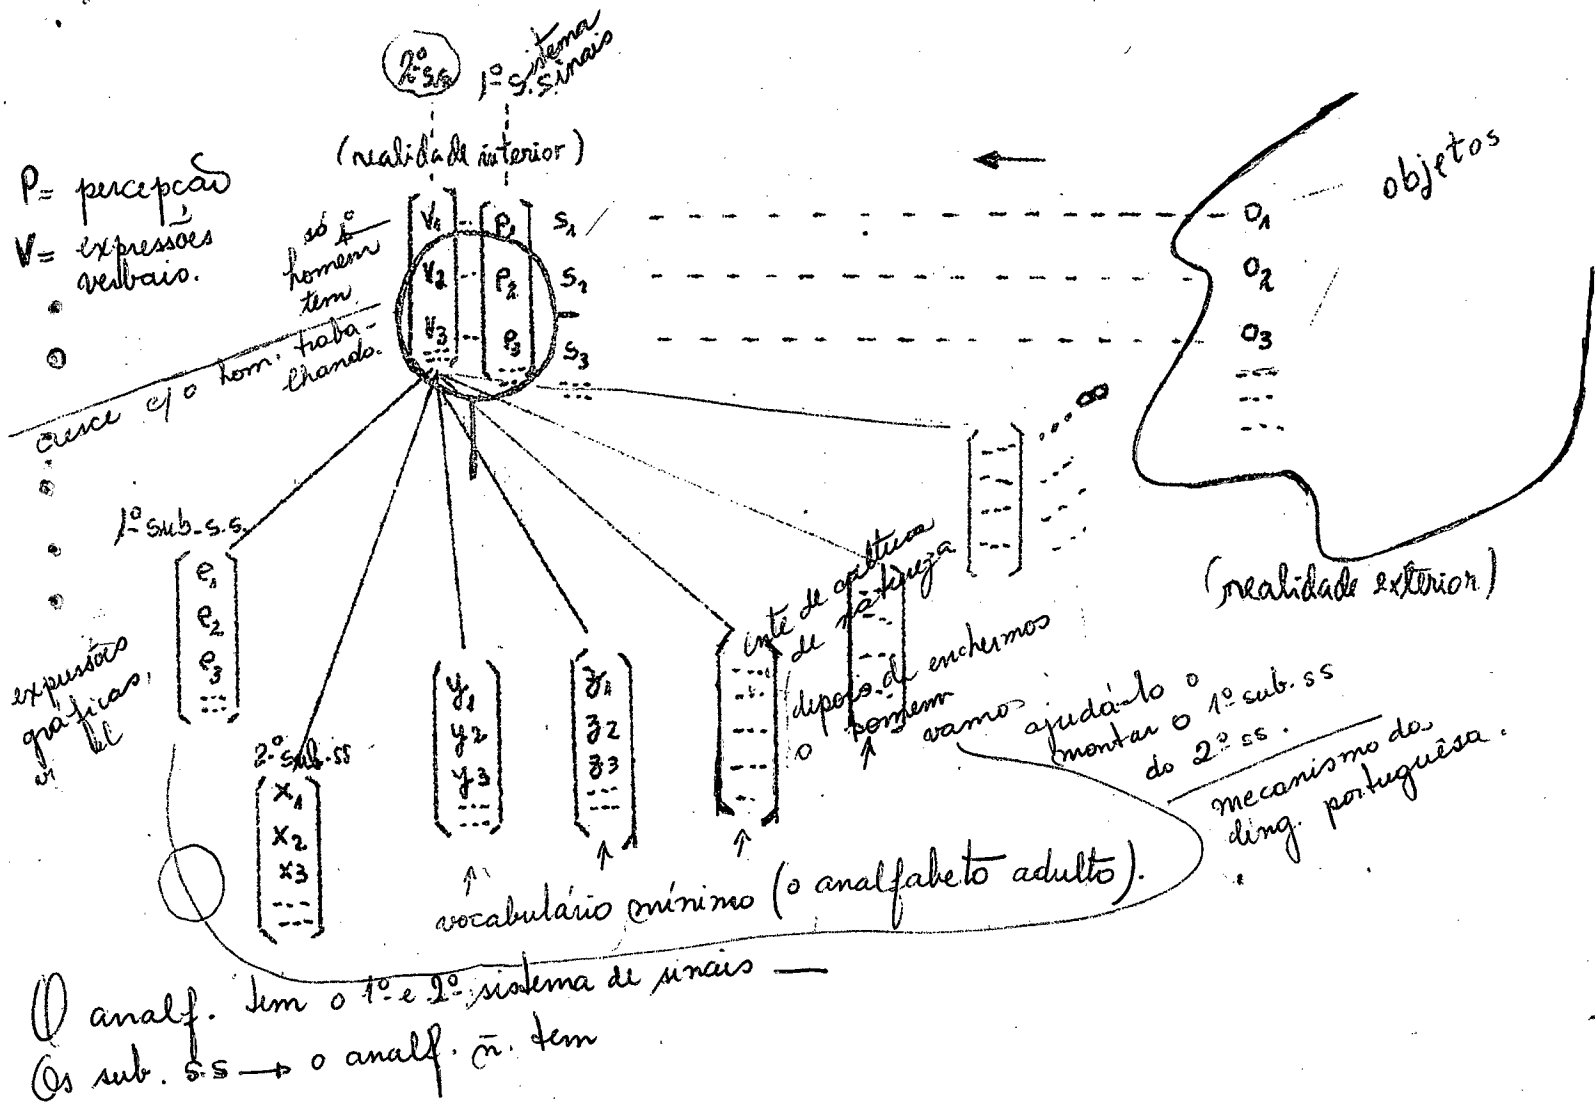 2º ss
1º s.istema
s.sinais
(realidade interior)
P= percepção
V= expressões
verbais.
só o
homem
tem
cresce c/o hom. traba-
lhando.
V₁ P₁ S₁
V₂ P₂ S₂
V₃ P₃ S₃
O₁
O₂
O₃
objetos
(realidade exterior)
∞
1º sub-s.s.
e₁
e₂
e₃
expressões
gráficas,
2º sub.ss
x₁
x₂
x3
y₁
y2
y3
z₁
z2
z3
de cultura
de natureza
depois de enchermos
o homem
vamos ajudá-lo o
montar o 1º sub.ss
do 2º ss.
mecanismo da
ling. portuguêsa.
vocabulário mínimo (o analfabeto adulto).
O analf. tem o 1º e 2º sistema de sinais —
Os sub. s.s → o analf. ñ. tem